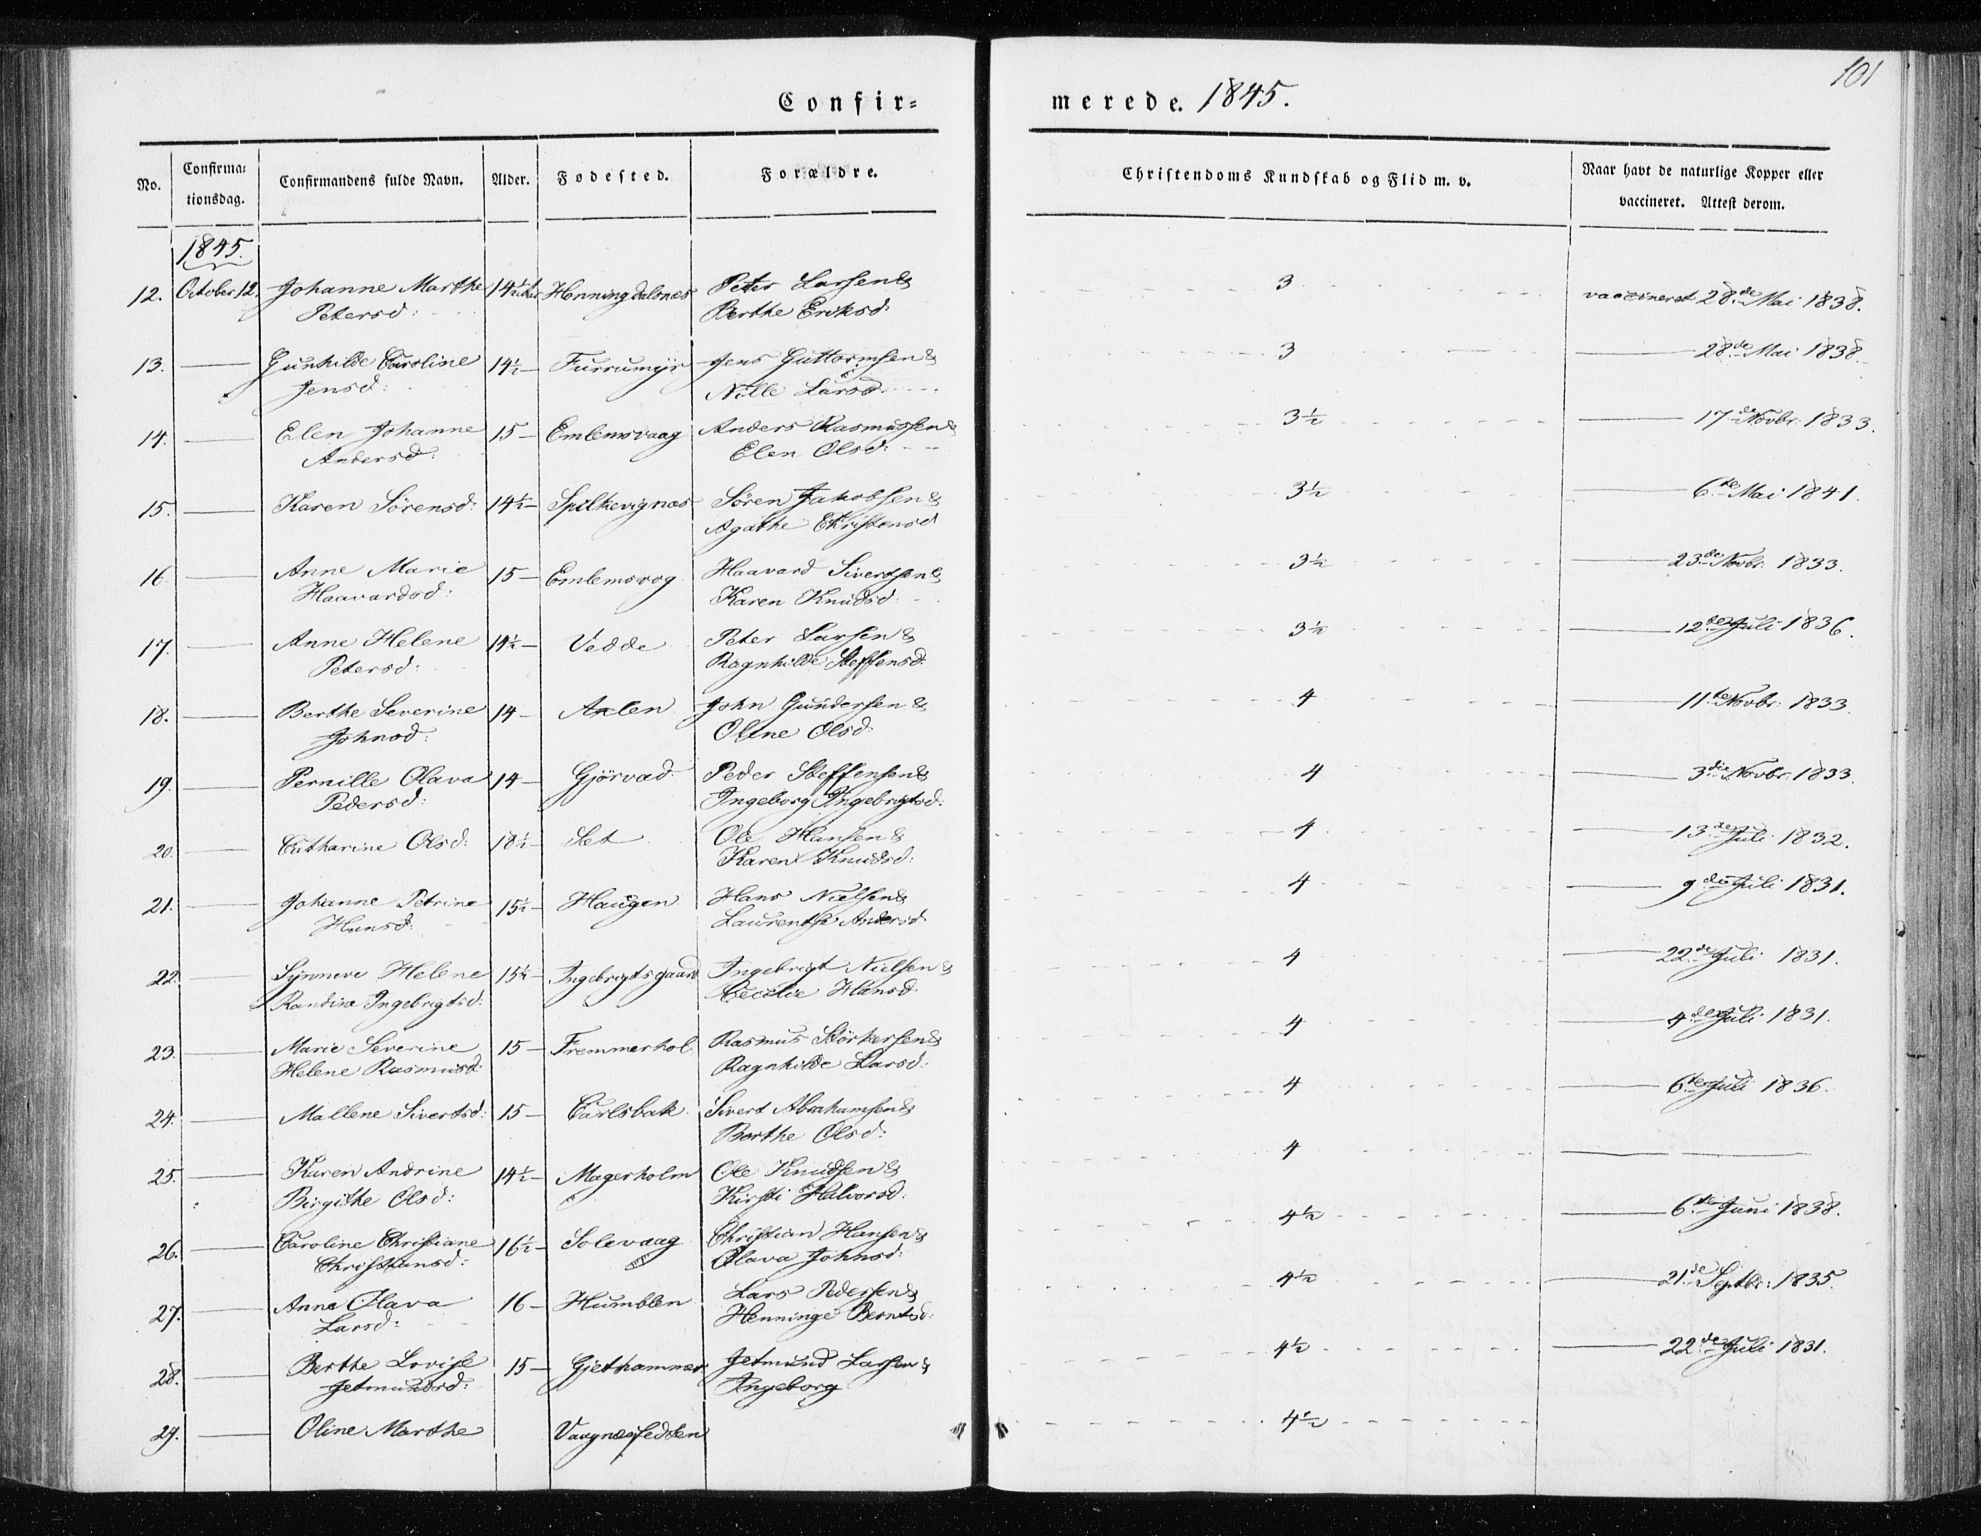 101
Confir=
merede. 1845.
No.
Confirma=
tionsdag.
Confirmandens fulde Navn.
Alder.
Fødested.
Forældre.
Christendoms Kundskab og Flid m. v.
Naar havt de naturlige Kopper eller
vaccineret. Attest derom.
1845.
12. October 12. Johanne Marthe 14½ Henningdalsnes Peter Larsen & 3 vaccineret 28de Mai 1838.
Petersd: Berthe Eriksd:
13. Gunhilde Caroline 14½ Furrumyr Jens Guttormsen & 3 28de Mai 1838.
Jensd: Nille Larsd.
14. Elen Johanne 15 Emlemsvaag Anders Rasmussen & 3½ 17de Novbr. 1833.
Andersd: Elen Olsd:
15. Karen Sørensd: 14½ Spilkevignæs Søren Jakobsen & 3½ 6te Mai 1841.
Agathe Christensd
16 Anne Marie 15 Emlemsvog Haavard Sivertsen & 3½ 23de Novbr. 1833.
Haavardsd: Karen Knudsd:
17. Anne Helene 14½ Vedde Peter Larsen & 3½ 12te Juli 1836.
Petersd: Ragnhilde Steffensd:
18. Berthe Severine 14 Axlen John Gundersen & 4 11te Novbr. 1833.
Johnsd: Oline Olsd:
19. Pernille Olava 14 Gjørvad Peder Steffensen & 4 3die Novbr. 1833.
Pedersd: Ingeborg Ingebrigtsd:
20. Catharine Olsd: 18½ Set Ole Hansen & 4 13de Juli 1832.
Karen Knudsd:
21. Johanne Petrine 15½ Haugen Hans Nielsen & 4 9de Juli 1831.
Hansd: Laurentse Andersd.
22. Synneve Helene 15½ Ingebrigtsgaard Ingebrigt Nielsen & 4 22de Juli 1831.
Randine Ingebrigtsd: Cecelie Hansd.
23. Marie Severine 15 Fremmerhol Rasmus Størkersen & 4 4de Juli 1831.
Helene Rasmusd: Ragnhilde Larsd:
24. Mallene Sivertsd: 15 Carlsbak Sivert Abrahamsen & 4 6te Juli 1836.
Berthe Olsd:
25. Karen Andrine 14½ Magerholm Ole Knudsen & 4
Birgithe Olsd: Kirsti Halvorsd:
26. Caroline Christiane 16½ Solevaag Christian Hansen & 4½ 6te Juni 1838.
Christiansd: Olava Johnsd:
27. Anne Olava 16 Humblen Lars Pedersen & 4½ 21de Septbr: 1835.
Larsd: Henninge Berntsd:
28. Berthe Lovise 15 Gjethammer Jetmund Larsen & 4½ 22de Juli 1831.
Jetmundsd: Ingeborg
29. Oline Marthe 4½